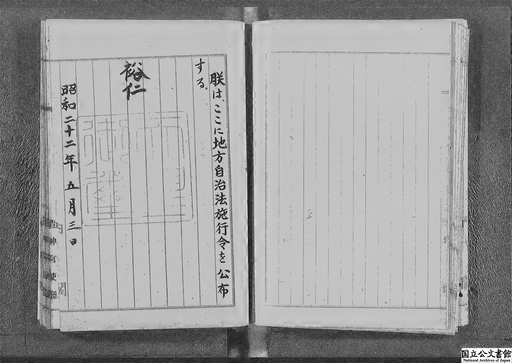 朕は、ここに地方自治法施行令を公布
する。
裕仁
御璽
昭和二十二年五月三日
国立公文書館
National Archives of Japan